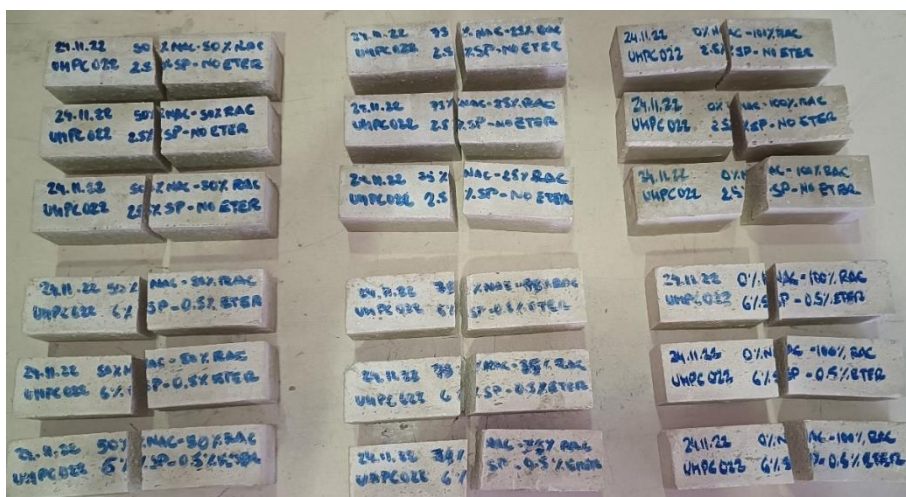 24.11.22 50 % NAC-50% RAC
UHPC022 2.5 %SP-NO ETER
24.11.22 75 % NAC-25% RAC
UHPC022 2.5 %SP-NO ETER
24.11.22 0% NAC-100% RAC
UHPC022 2.5% SP-NO ETER
24.11.22 50% NAC-50% RAC
UHPC022 2.5% SP-NO ETER
24.11.22 75% NAC-25% RAC
UHPC022 2.5 %SP-NO ETER
24.11.22 0% NAC-100% RAC
UHPC022 2.5 %SP-NO ETER
24.11.22 50 % NAC-50% RAC
UHPC022 2.5 % SP-NO ETER
24.11.22 75% NAC-25% RAC
UHPC022 2.5 %SP-NO ETER
24.11.22 0% NAC-100% RAC
UHPC022 2.5 SP-NO ETER
24.11.22 50% NAC-50% RAC
UHPC022 6% SP-0.5% ETER
24.11.22 75 % NAC- RAC
UHPC022 6% SP-0.5% ETER
24.11.22 0% NAC-100% RAC
UHPC022 6% SP-0.5% ETER
24.11.22 50% NAC-50% RAC
UHPC022 6% SP-0.5% ETER
24.11.22 75 % RAC
UHPC022 6% SP-0.5% ETER
24.11.22 0% NAC-100% RAC
UHPC022 6% SP-0.5% ETER
24.11.22 50% NAC-50% RAC
UHPC022 6% SP-0.5% ETER
24.11.22 NAC- RAC
UHPC022 6% SP-0.5% ETER
24.11.22 0% NAC-100% RAC
UHPC022 6% SP -0.5% ETER